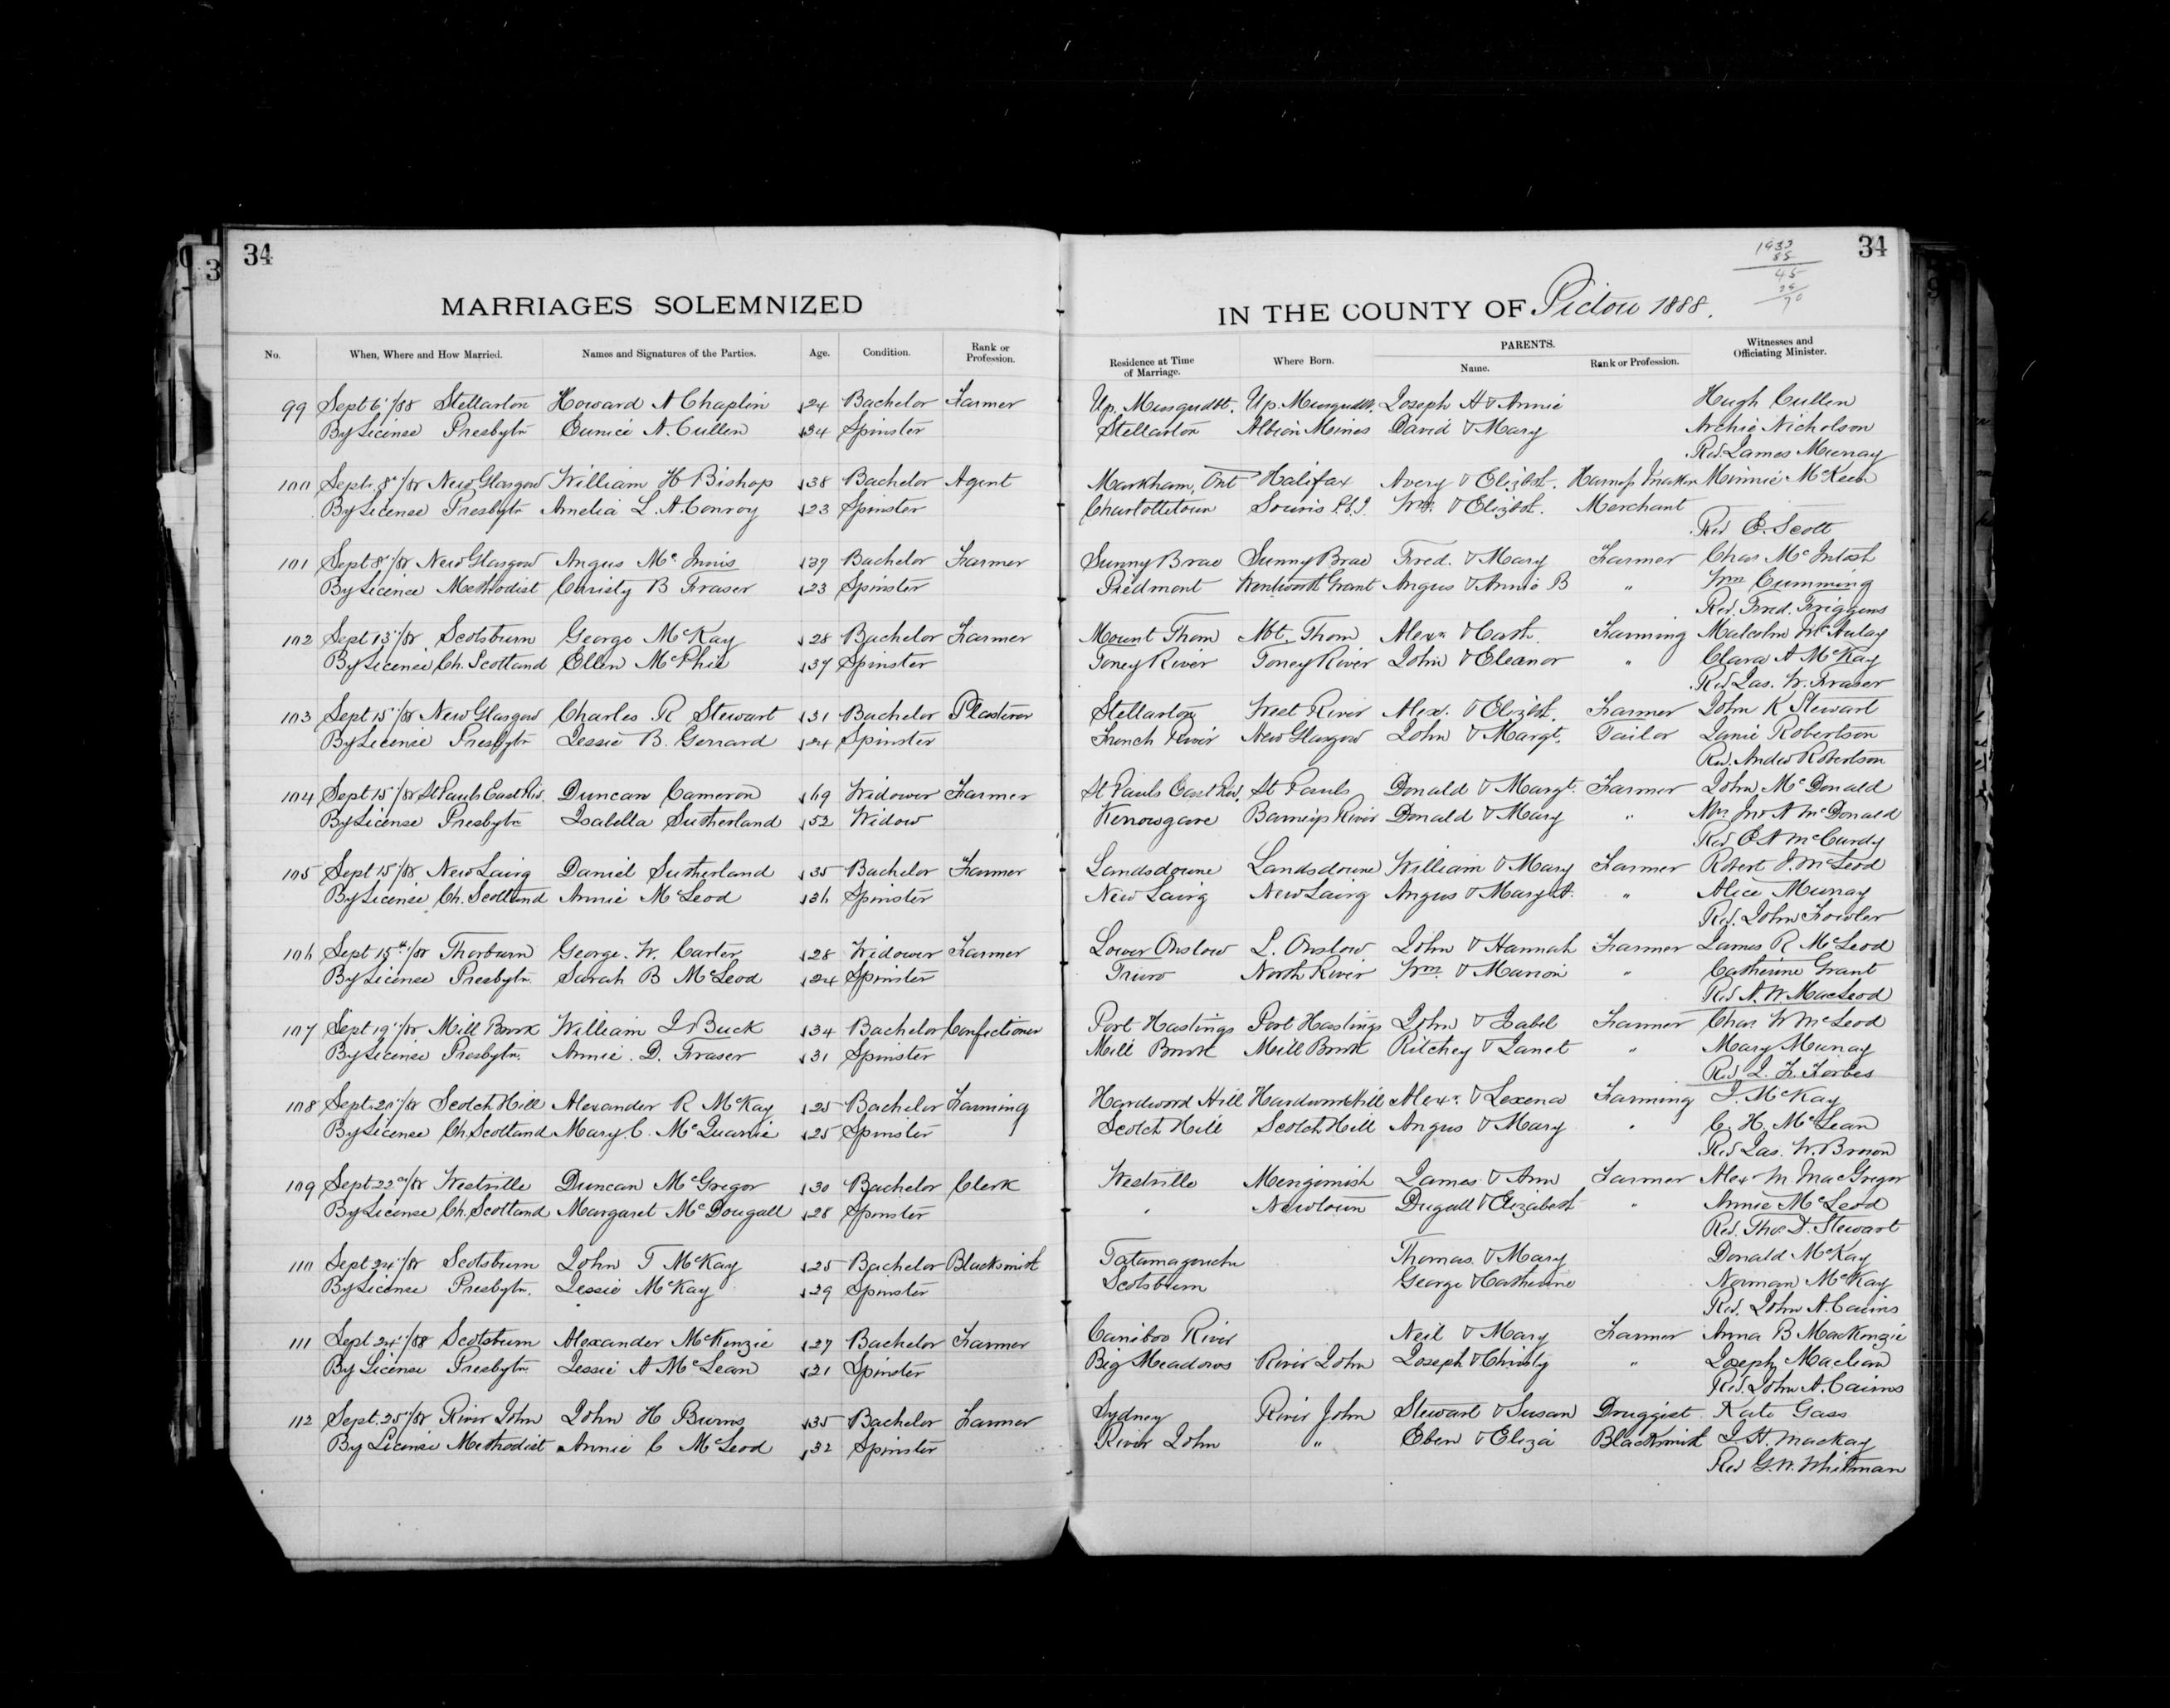 34
MARRIAGES SOLEMNIZED
No. When, Where and How Married. Names and Signatures of the Parties. Age. Condition. Rank or Profession.
99 Sept 6"/88 Stellarton Howard A Chaplin 24 Bachelor Farmer
By License Presbytn Eunice A. Cullen 34 Spinster
100 Sept. 8"/88 New Glasgow William H Bishop 38 Bachelor Agent
By License Presbytn Amelia L. A. Conroy 23 Spinster
101 Sept 8"/88 New Glasgow Angus McInnis 37 Bachelor Farmer
By License Methodist Christy B Fraser 23 Spinster
102 Sept 13"/88. Scotsburn George McKay 28 Bachelor Farmer
By License Ch. Scotland Ellen McPhie 37 Spinster
103 Sept 15"/88 New Glasgow Charles R Stewart 31 Bachelor Plasterer
By License Presbytn Jessie B. Gerrard 24 Spinster
104 Sept 15"/88 St Pauls East Riv. Duncan Cameron 69 Widower Farmer
By License Presbytn Isabella Sutherland 52 Widow
105 Sept 15"/88 New Lairg Daniel Sutherland 35 Bachelor Farmer
By License Ch. Scotland Annie McLeod 36 Spinster
106 Sept 15th/88 Thorburn George. W. Carter 28 Widower Farmer
By License Presbytn. Sarah B McLeod 24 Spinster
107 Sept 19"/88 Mill Brook William J Buck 34 Bachelor Confectioner
By License Presbytn. Annie. D. Fraser 31 Spinster
108 Sept. 20"/88 Scotch Hill Alexander R McKay 25 Bachelor Farming
By License Ch Scotland Mary. C. McQuarrie 25 Spinster
109 Sept 22nd/88 Westville Duncan McGregor 30 Bachelor Clerk
By License Ch. Scotland Margaret McDougall 28 Spinster
110 Sept 24"/88 Scotsburn John T McKay 25 Bachelor Blacksmith
By License Presbytn. Jessie McKay 29 Spinster
111 Sept. 24"/88 Scotsburn Alexander McKenzie 27 Bachelor Farmer
By License Presbytn Jessie A McLean 21 Spinster
112 Sept. 25"/88 River John John H Burns 35 Bachelor Farmer
By License Methodist Annie C McLeod 32 Spinster
34
1933
85
45
IN THE COUNTY OF Pictou 1888.
Residence at Time of Marriage. Where Born. PARENTS. Name. Rank or Profession. Witnesses and Officiating Minister.
Up. Musquodbt. Up. Musquodbt. Joseph H & Annie Hugh Cullen
Stellarton Albion Meines David & Mary Archie Nicholson
Rev. James Murray
Markham, Ont Halifax Avery & Elizbt. Harness Maker Minnie McKeen
Charlottetown Souris P.E.I. Wm. & Elizbt. Merchant
Rev E. Scott
Sunny Brae Sunny Brae Fred. & Mary Farmer Chas McIntosh
Piedmont Wentworth Grant Angus & Annie B " Wm Cumming
Rev. Fred. Friggens
Mount Thom Mt. Thom Alexr & Cath. Farming Malcolm McAulay
Toney River Toney River John & Eleanor " Clara A McKay
Rev Jas. W. Fraser
Stellarton West River Alex. & Elizbt. Farmer John K Stewart
French River New Glasgow John & Margt. Tailor Janie Robertson
Rev. Andw Robertson
St Pauls East Riv. St Pauls Donald & Margt. Farmer John McDonald
Kenowgave Barneys River Donald & Mary " Mrs Jno A McDonald
Rev E A McCurdy
Landsdowne Landsdowne William & Mary Farmer Robert J. McLeod
New Lairg New Lairg Angus & Margt. " Alice Murray
Rev. John Fowler
Lower Onslow L. Onslow John & Hannah Farmer James R McLeod
Truro North River Wm. & Marion " Catherine Grant
Rev A. W. MacLeod
Port Hastings Port Hastings John & Isabel Farmer Chas W McLeod
Mill Brook Mill Brook Ritchey & Janet " Mary Murray
Rev. J. F. Forbes
Hardwood Hill Hardwood Hill Alexr. & Lexena Farming J. McKay
Scotch Hill Scotch Hill Angus & Mary " C. H. McLean
Rev Jas. W. Brown
Westville Merigimish James & Ann Farmer Alex M MacGregor
" Newtown Dugall & Elizabeth " Annie McLeod
Rev. Thos D. Stewart
Tatamagouche Thomas & Mary Donald McKay
Scotsburn George & Catherine Norman McKay
Rev. John A. Cairns
Cariboo River Neil & Mary Farmer Anna B MacKenzie
Big Meadows River John Joseph & Christy " Joseph Maclean
Rev. John A. Cairns
Sydney River John Stewart & Susan Druggist Kate Gass
River John " Eben & Eliza Blacksmith J. H. Mackay
Rev G. W. Whitman